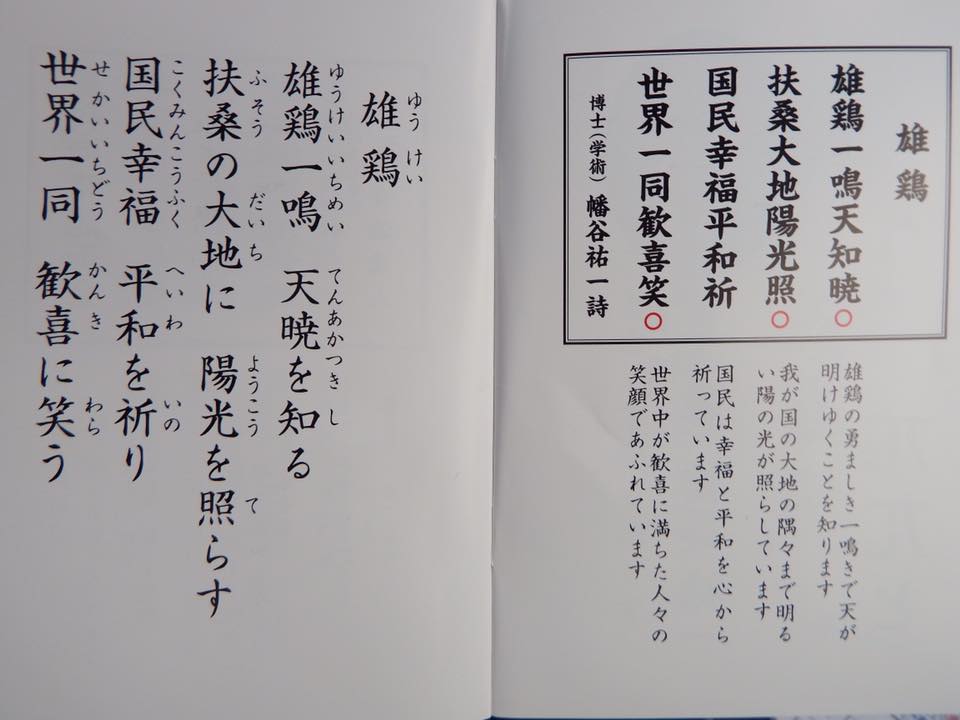 雄鶏
雄鶏一鳴天知暁○
扶桑大地陽光照○
国民幸福平和祈
世界一同歓喜笑○
博士(学術) 幡谷祐一詩
雄鶏の勇ましき一鳴きで天が
明けゆくことを知ります
我が国の大地の隅々まで明る
い陽の光が照らしています
国民は幸福と平和を心から
祈っています
世界中が歓喜に満ちた人々の
笑顔であふれています
ゆう けい
雄鶏
ゆうけいいちめい てんあかつき し
雄鶏一鳴 天暁を知る
ふそう だいち ようこう て
扶桑の大地に 陽光を照らす
こくみんこうふく へいわ いの
国民幸福 平和を祈り
せかいいちどう かんき わら
世界一同 歓喜に笑う